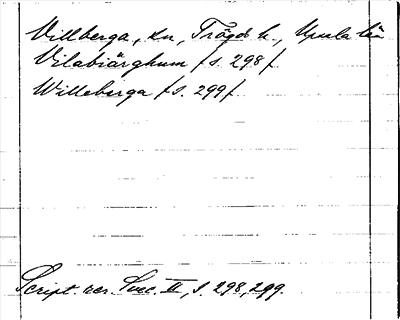 Villberga, sn, Trögds h., Upsala län
Vilabiärghum /s. 298/.
Willeberga /s. 299/.
Script. rer. Svec. II, s. 298, 299.